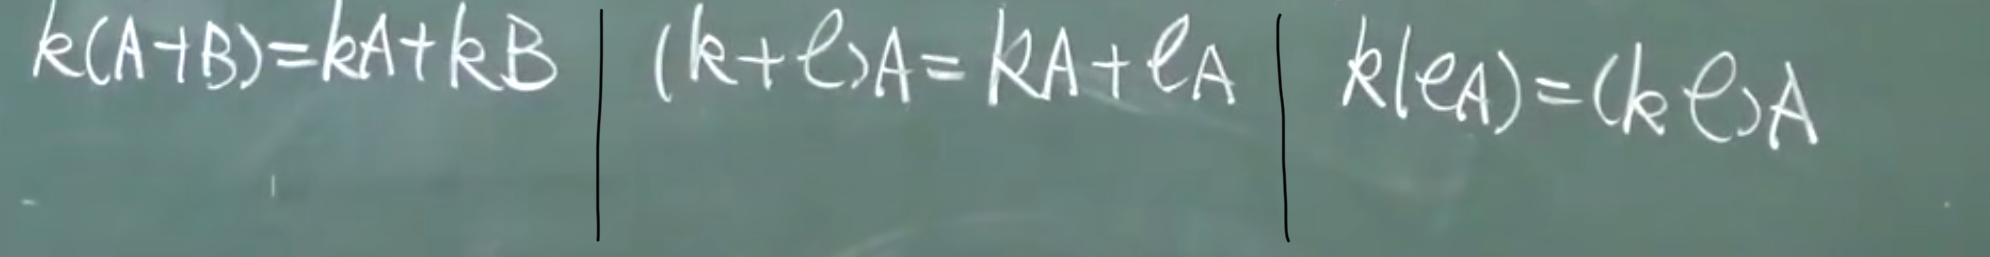 k(A+B)=kA+kB
(k+ℓ)A=kA+ℓA
k(ℓA)=(kℓ)A